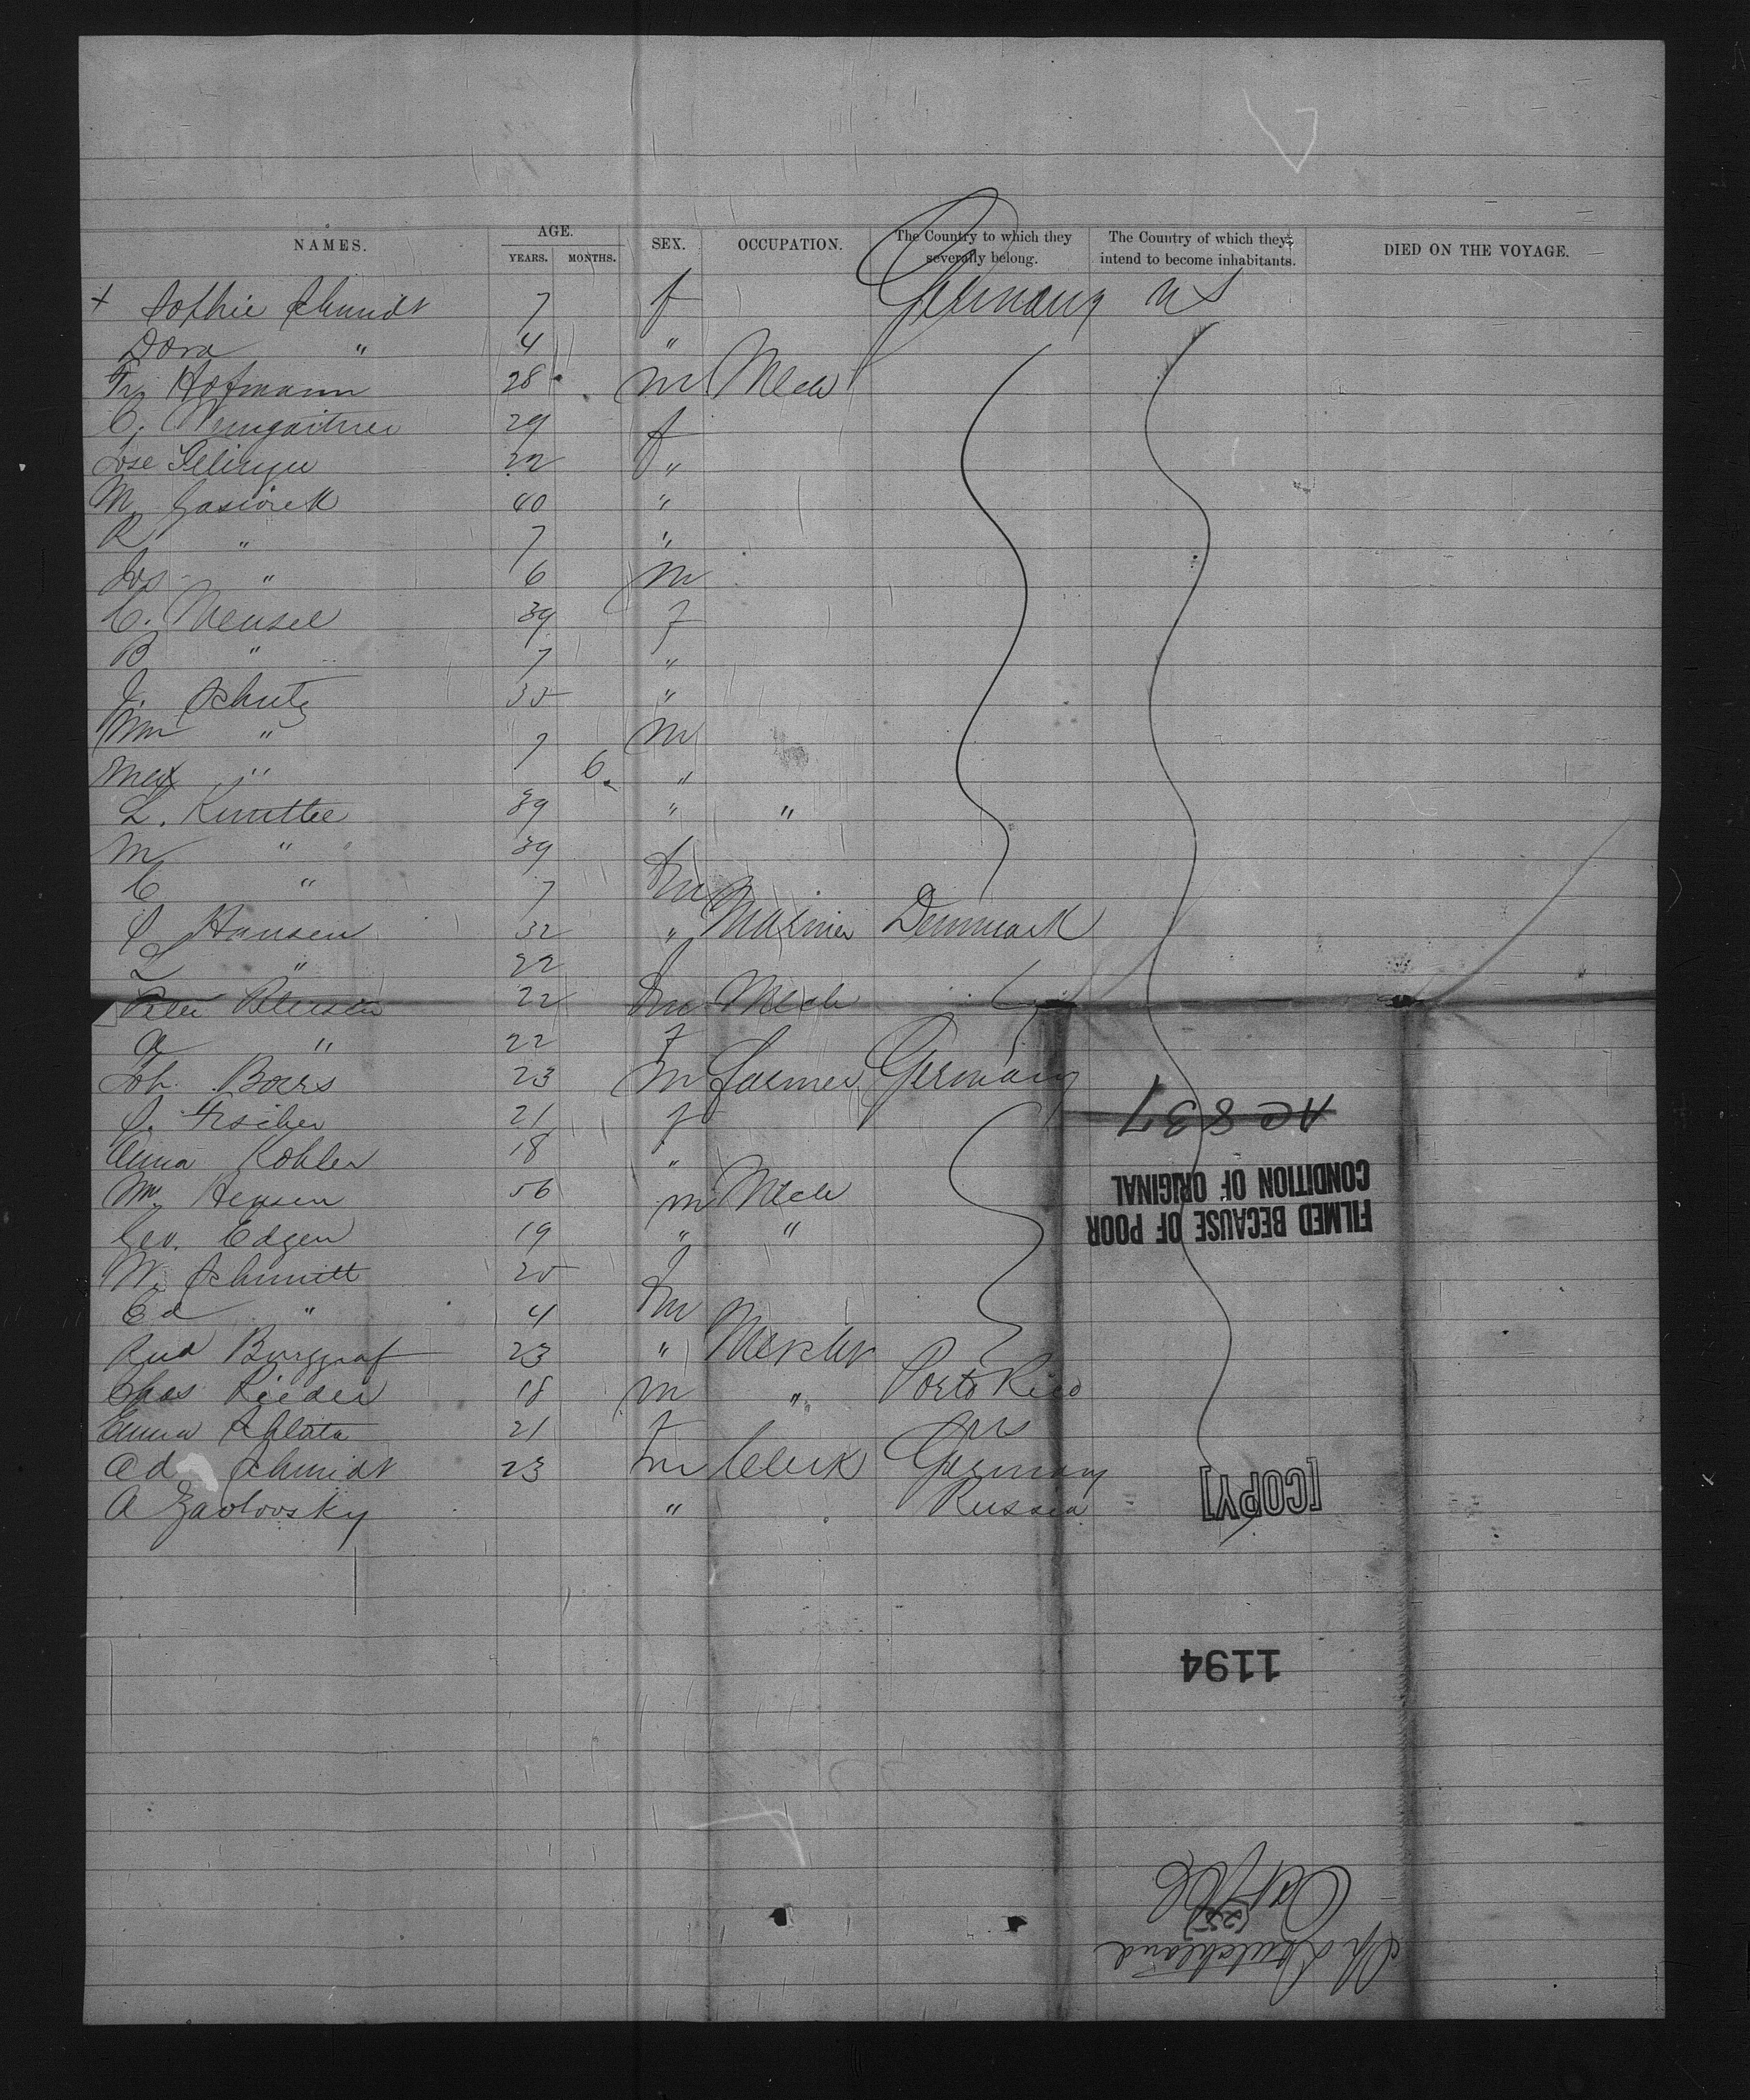 NAMES. AGE. YEARS. MONTHS. SEX. OCCUPATION. The Country to which they severally belong. The Country of which they intend to become inhabitants. DIED ON THE VOYAGE.
+ Sophie Schmidt 7 f Germany US
Dora " 4 "
Fr. Hofmann 28 m Mech
C. 29 f
Jose 22 "
M. Gasiorek 40 "
R " 7 "
Jos " 6 m
C. Mensel 39 f
B " 7 "
J. Schutz 35 "
Wm " 7 m
Max " 6 "
L. 39 " "
M " 39 f
C " 7 m
J Hansen 32 " Mariner Denmark
L " 22 f
Peter Petersen 22 m Mech
A " 22 f
Joh. Boers 23 m Farmer Germany
J. Fischer 21 f
Anna Kohler 18 "
Wm. Hensen 56 m Mech
Geo. Edgen 19 " "
W. Schmitt 25 f
Ed " 4 m
Rud Burggraf 23 " Mercht
Chas Rieder 18 m " Porto Rico
Emma 21 f US
Ad Schmidt 23 m Clerk Germany
A Zavlovsky " Russia
AC 837
FILMED BECAUSE OF POOR
CONDITION OF ORIGINAL
[COPY]
1194
Sh Deutschland
(25)